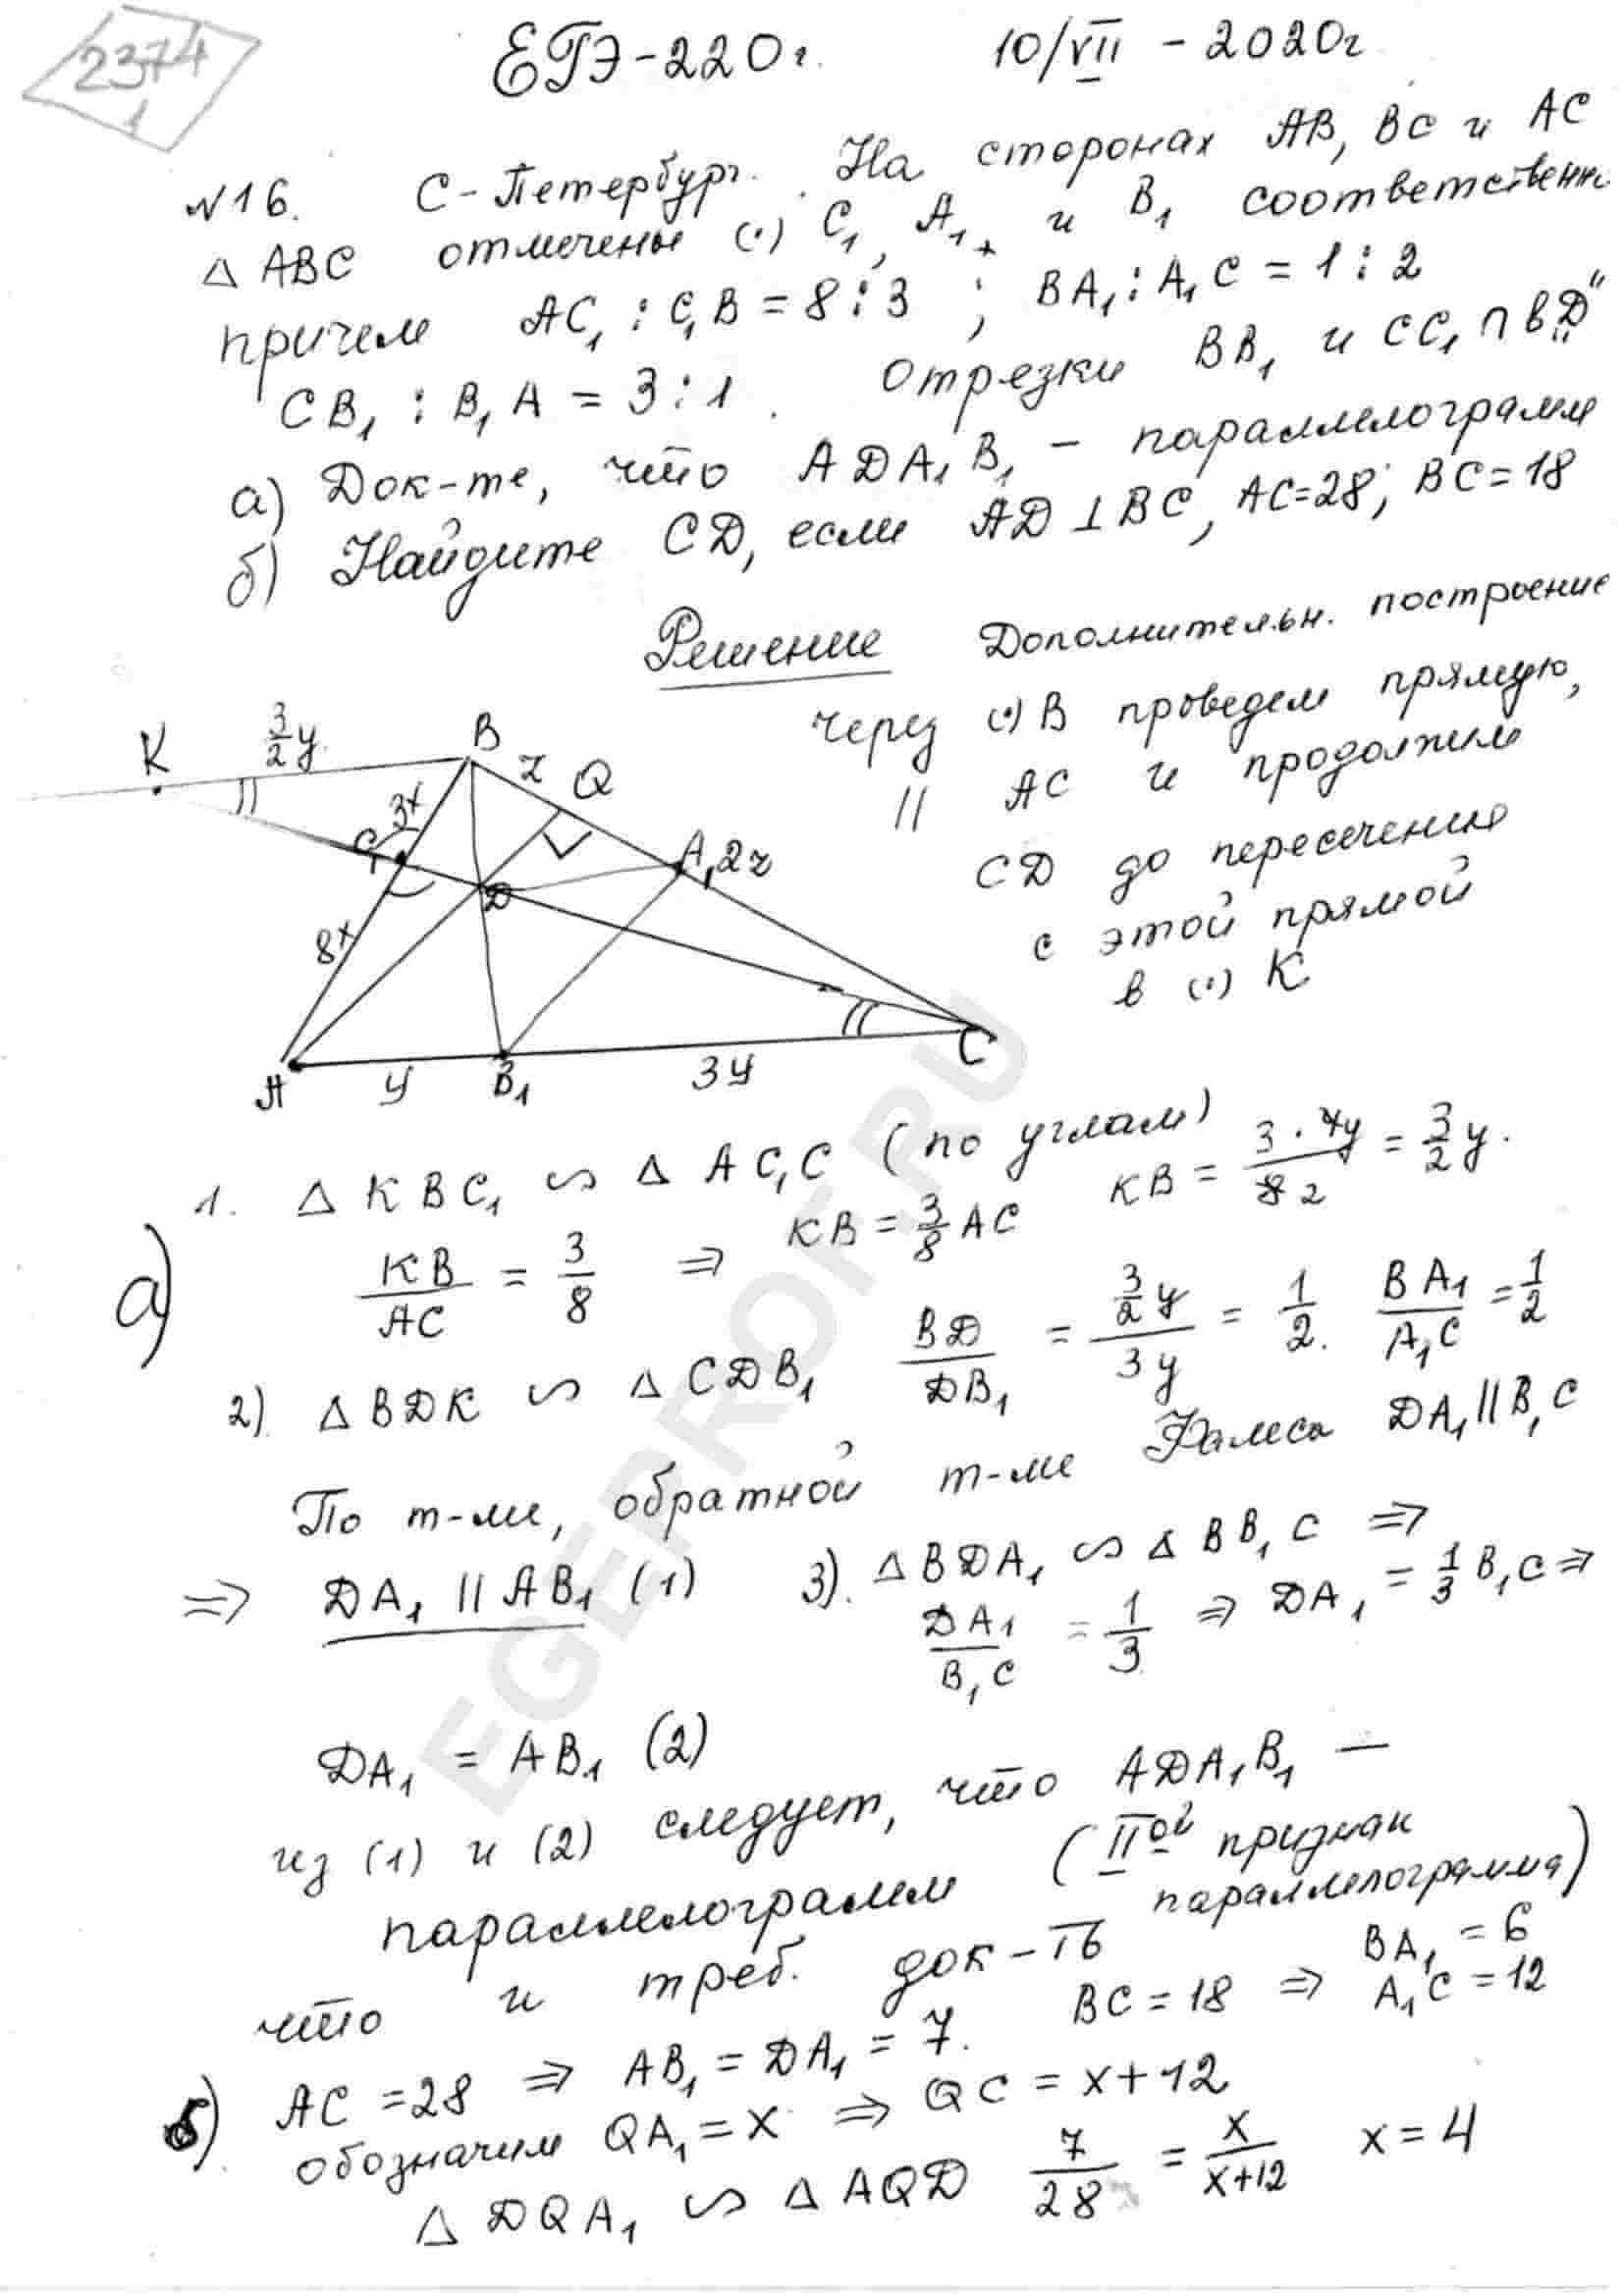 2374
1
ЕГЭ-220г. 10/VII - 2020г
№16. С-Петербург. На сторонах AB, BC и AC
△ ABC отмечены (·) C₁, A₁, и B₁ соответственно
причем AC₁ : C₁B = 8 : 3 ; BA₁ : A₁C = 1 : 2
CB₁ : B₁A = 3 : 1. Отрезки BB₁ и CC₁ ∩ в "D"
а) Док-те, что ADA₁B₁ - параллелограмм
б) Найдите CD, если AD ⊥ BC, AC=28; BC=18
Решение Дополнительн. построение
через (·) B проведем прямую,
|| AC и продолжим
CD до пересечения
с этой прямой
в (·) K
K 3/2 y B z Q
C₁ 3x A₁ 2z
8x D
A y B₁ 3y C
а) 1. △ KBC₁ ∽ △ AC₁C (по углам)
KB/AC = 3/8 ⇒ KB = 3/8 AC KB = 3·4y/8 2 = 3/2 y.
2). △ BDK ∽ △ CDB₁ BD/DB₁ = 3/2 y/3y = 1/2. BA₁/A₁C = 1/2
По т-ме, обратной т-ме Фалеса DA₁ || B₁C
⇒ DA₁ || AB₁ (1) 3). △ BDA₁ ∽ △ BB₁C ⇒
DA₁/B₁C = 1/3 ⇒ DA₁ = 1/3 B₁C ⇒
DA₁ = AB₁ (2)
из (1) и (2) следует, что ADA₁B₁ —
параллелограмм (II ой признак параллелограмма)
что и треб. док-ть
б) AC = 28 ⇒ AB₁ = DA₁ = 7. BC = 18 ⇒ BA₁ = 6 A₁C = 12
обозначим QA₁ = x ⇒ QC = x+12
△ DQA₁ ∽ △ AQD 7/28 = x/x+12 x = 4
EGEPROF.RU